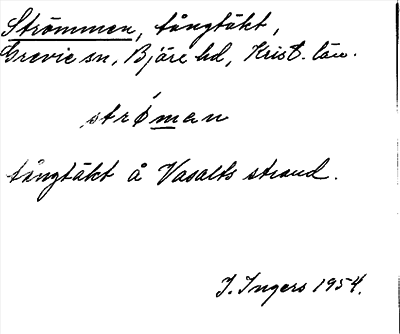 Strömmen, tångtäkt,
Grevie sn, Bjäre hd, Krist. län.
strǿman
tångtäkt å Vasalts strand.
I. Ingers 1954.